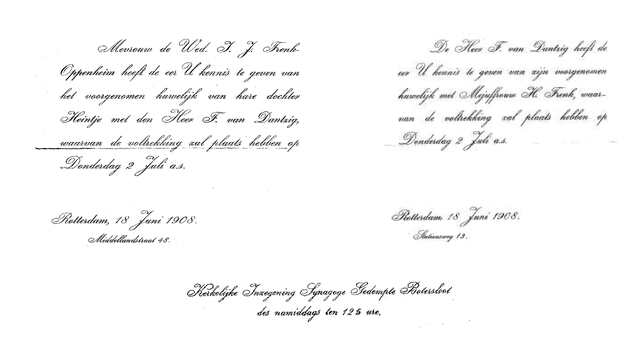 Mevrouw de Wed. I. J. Frenk-
Oppenheim heeft de eer U kennis te geven van
het voorgenomen huwelijk van hare dochter
Heintje met den Heer F. van Dantzig,
waarvan de voltrekking zal plaats hebben op
Donderdag 2 Juli a.s.
Rotterdam, 18 Juni 1908.
Middellandstraat 48.
De Heer F. van Dantzig heeft de
eer U kennis te geven van zijn voorgenomen
huwelijk met Mejuffrouw H. Frenk, waar-
van de voltrekking zal plaats hebben op
Donderdag 2 Juli a.s.
Rotterdam 18 Juni 1908.
Stationsweg 13.
Kerkelijke Inzegening Synagoge Gedempte Botersloot
des namiddags ten 12½ ure.